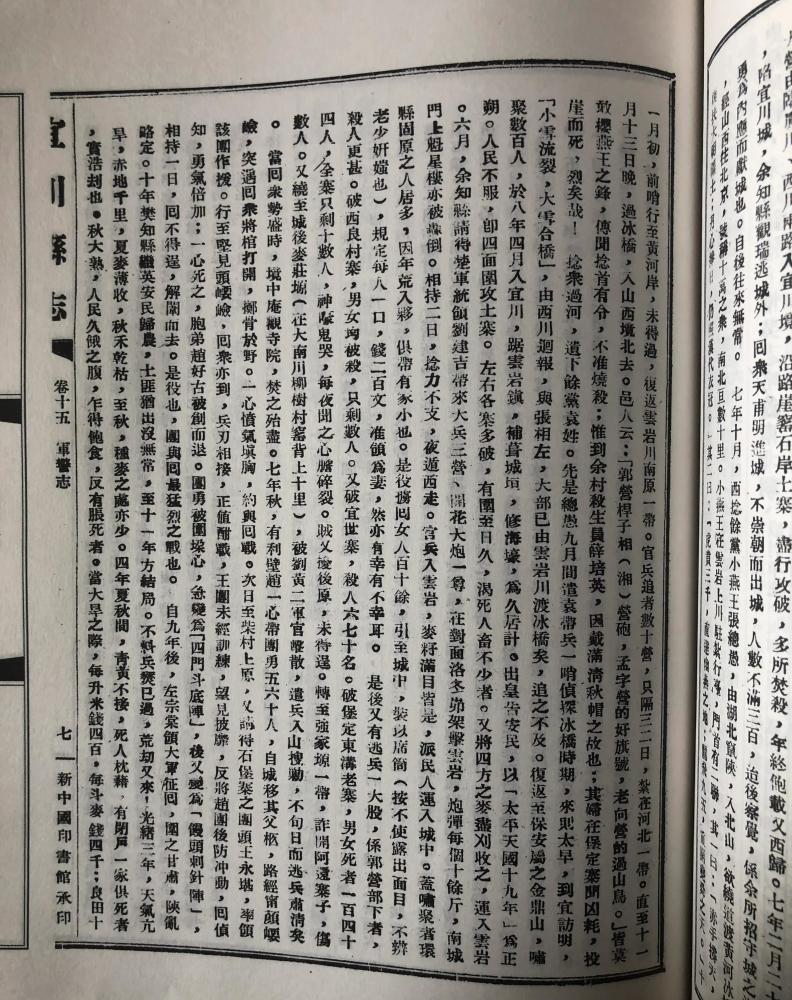 月營由陰川，西川兩路入宜川境，沿路崖窰石岸土寨，盡行攻破，多所焚殺，年終飽載又西歸。七年二月二十
，陷宜川城，余知縣觀瑞逃城外；囘衆天甫明進城，不崇朝而出城，人數不滿三百，迨後察覺，係余所招守城之
勇爲內應而獻城也。自後往來無常。　七年十月，西捻餘黨小燕王張總愚，由湖北竄陝，入北山，欲繞道渡黃河冰
，經山西往北京，號稱十萬之衆，南北亘數十里。小燕王在雲岩上川駐紮行臺，門首有二聯，其一曰：「赤手擎天，
一月初，前哨行至黃河岸，未得過，復返雲岩川南原一帶。官兵追者數十營，只隔三二日，紮在河北一帶。直至十一
月十三日晚，過冰橋，入山西境北去。邑人云：「郭營桿子相（湘）營砲，孟字營的好旗號，老向營的過山鳥。」皆莫
敢攖燕王之鋒，傳聞捻首有令，不准燒殺；惟到余村殺生員薛培英，因戴滿淸秋帽之故也；其婦在堡定寨聞凶耗，投
崖而死，烈矣哉！　捻衆過河，遺下餘黨袁姓。先是總愚九月間遣袁帶兵一哨偵探冰橋時期，來則太早，到宜訪明，
「小雪流裂，大雪合橋」，由西川迴報，與張相左，大部已由雲岩川渡冰橋矣，追之不及。復返至保安屬之金鼎山，嘯
聚數百人，於八年四月入宜川，踞雲岩鎮，補葺城垣，修海壕，爲久居計。出皇告安民，以「太平天國十九年」爲正
朔。人民不服，卽四面圍攻土寨。左右各寨多破，有圍至日久，渴死人畜不少者。又將四方之麥盡刈收之，運入雲岩
。六月，余知縣請得楚軍統領劉建吉帶來大兵三營、開花大炮一尊，在對面洛冬峁架擊雲岩，炮彈每個十餘斤，南城
門上魁星樓亦被轟倒。相持二日，捻力不支，夜遁西走。官兵入雲岩，麥籽滿目皆是，派民人運入城中。蓋嘯聚者環
縣固原之人居多，因年荒入夥，俱帶有家小也。是役擄囘女人百十餘，引至城中，裝以席筒（按不使露出面目，不辨
老少姸媸也），規定每人一口，錢二百文，准領爲妻，然亦有幸有不幸耳。　是後又有逃兵一大股，係郭營部下者，
殺人更甚。破西良村寨，男女均被殺，只剩數人。又破宜世寨，殺人六七十名。破堡定東溝老寨，男女死者一百四十
四人，全寨只剩十數人，神嚎鬼哭，每夜聞之心膽碎裂。賊又凌後原，未得逞。轉至強家塬一帶，詐開阿還寨子，傷
數人。又繞至城後麥莊塬（在大南川柳樹村窰背上十里），被劉黃二軍官擊散，遣兵入山搜勦，不旬日而逃兵肅淸矣
。　當囘衆勢盛時，境中庵觀寺院，焚之殆盡。七年秋，有利壁趙一心帶團勇五六十人，自城移其父柩，路經甯顛崾
嶮，突遇囘衆將棺打開，擲骨於野。一心憤氣塡胸，約與囘戰。次日至柴村上原，又請得石堡寨之團頭王永堪，率領
該團作援。行至堅見頭崾嶮，囘衆亦到，兵刃相接，正値酣戰，王團未經訓練，望見披靡，反將趙團後防冲動，囘偵
知，勇氣倍加；一心死之，胞弟趙好古被創而退。團勇被圍垓心，急變爲「四門斗底陣」，後又變爲「饅頭刺針陣」，
相持一日，囘不得逞，解圍而去。是役也，團與囘最猛烈之戰也。　自九年後，左宗棠領大軍征囘，圍之甘肅，陝亂
略定。十年樊知縣繼英安民歸農，土匪猶出沒無常，至十一年方結局。不料兵燹已過，荒刧又來！光緒三年，天氣亢
旱，赤地千里，夏麥薄收，秋禾乾枯，至秋，種麥之處亦少。四年夏秋間，靑黃不接，死人枕藉，有閉戶一家俱死者
，實浩刧也。秋大熟，人民久餓之腹，乍得飽食，反有脹死者。當大旱之際，每升米錢四百，每斗麥錢四千；良田十
宜川縣志
卷十五　軍警志
七　新中國印書館承印